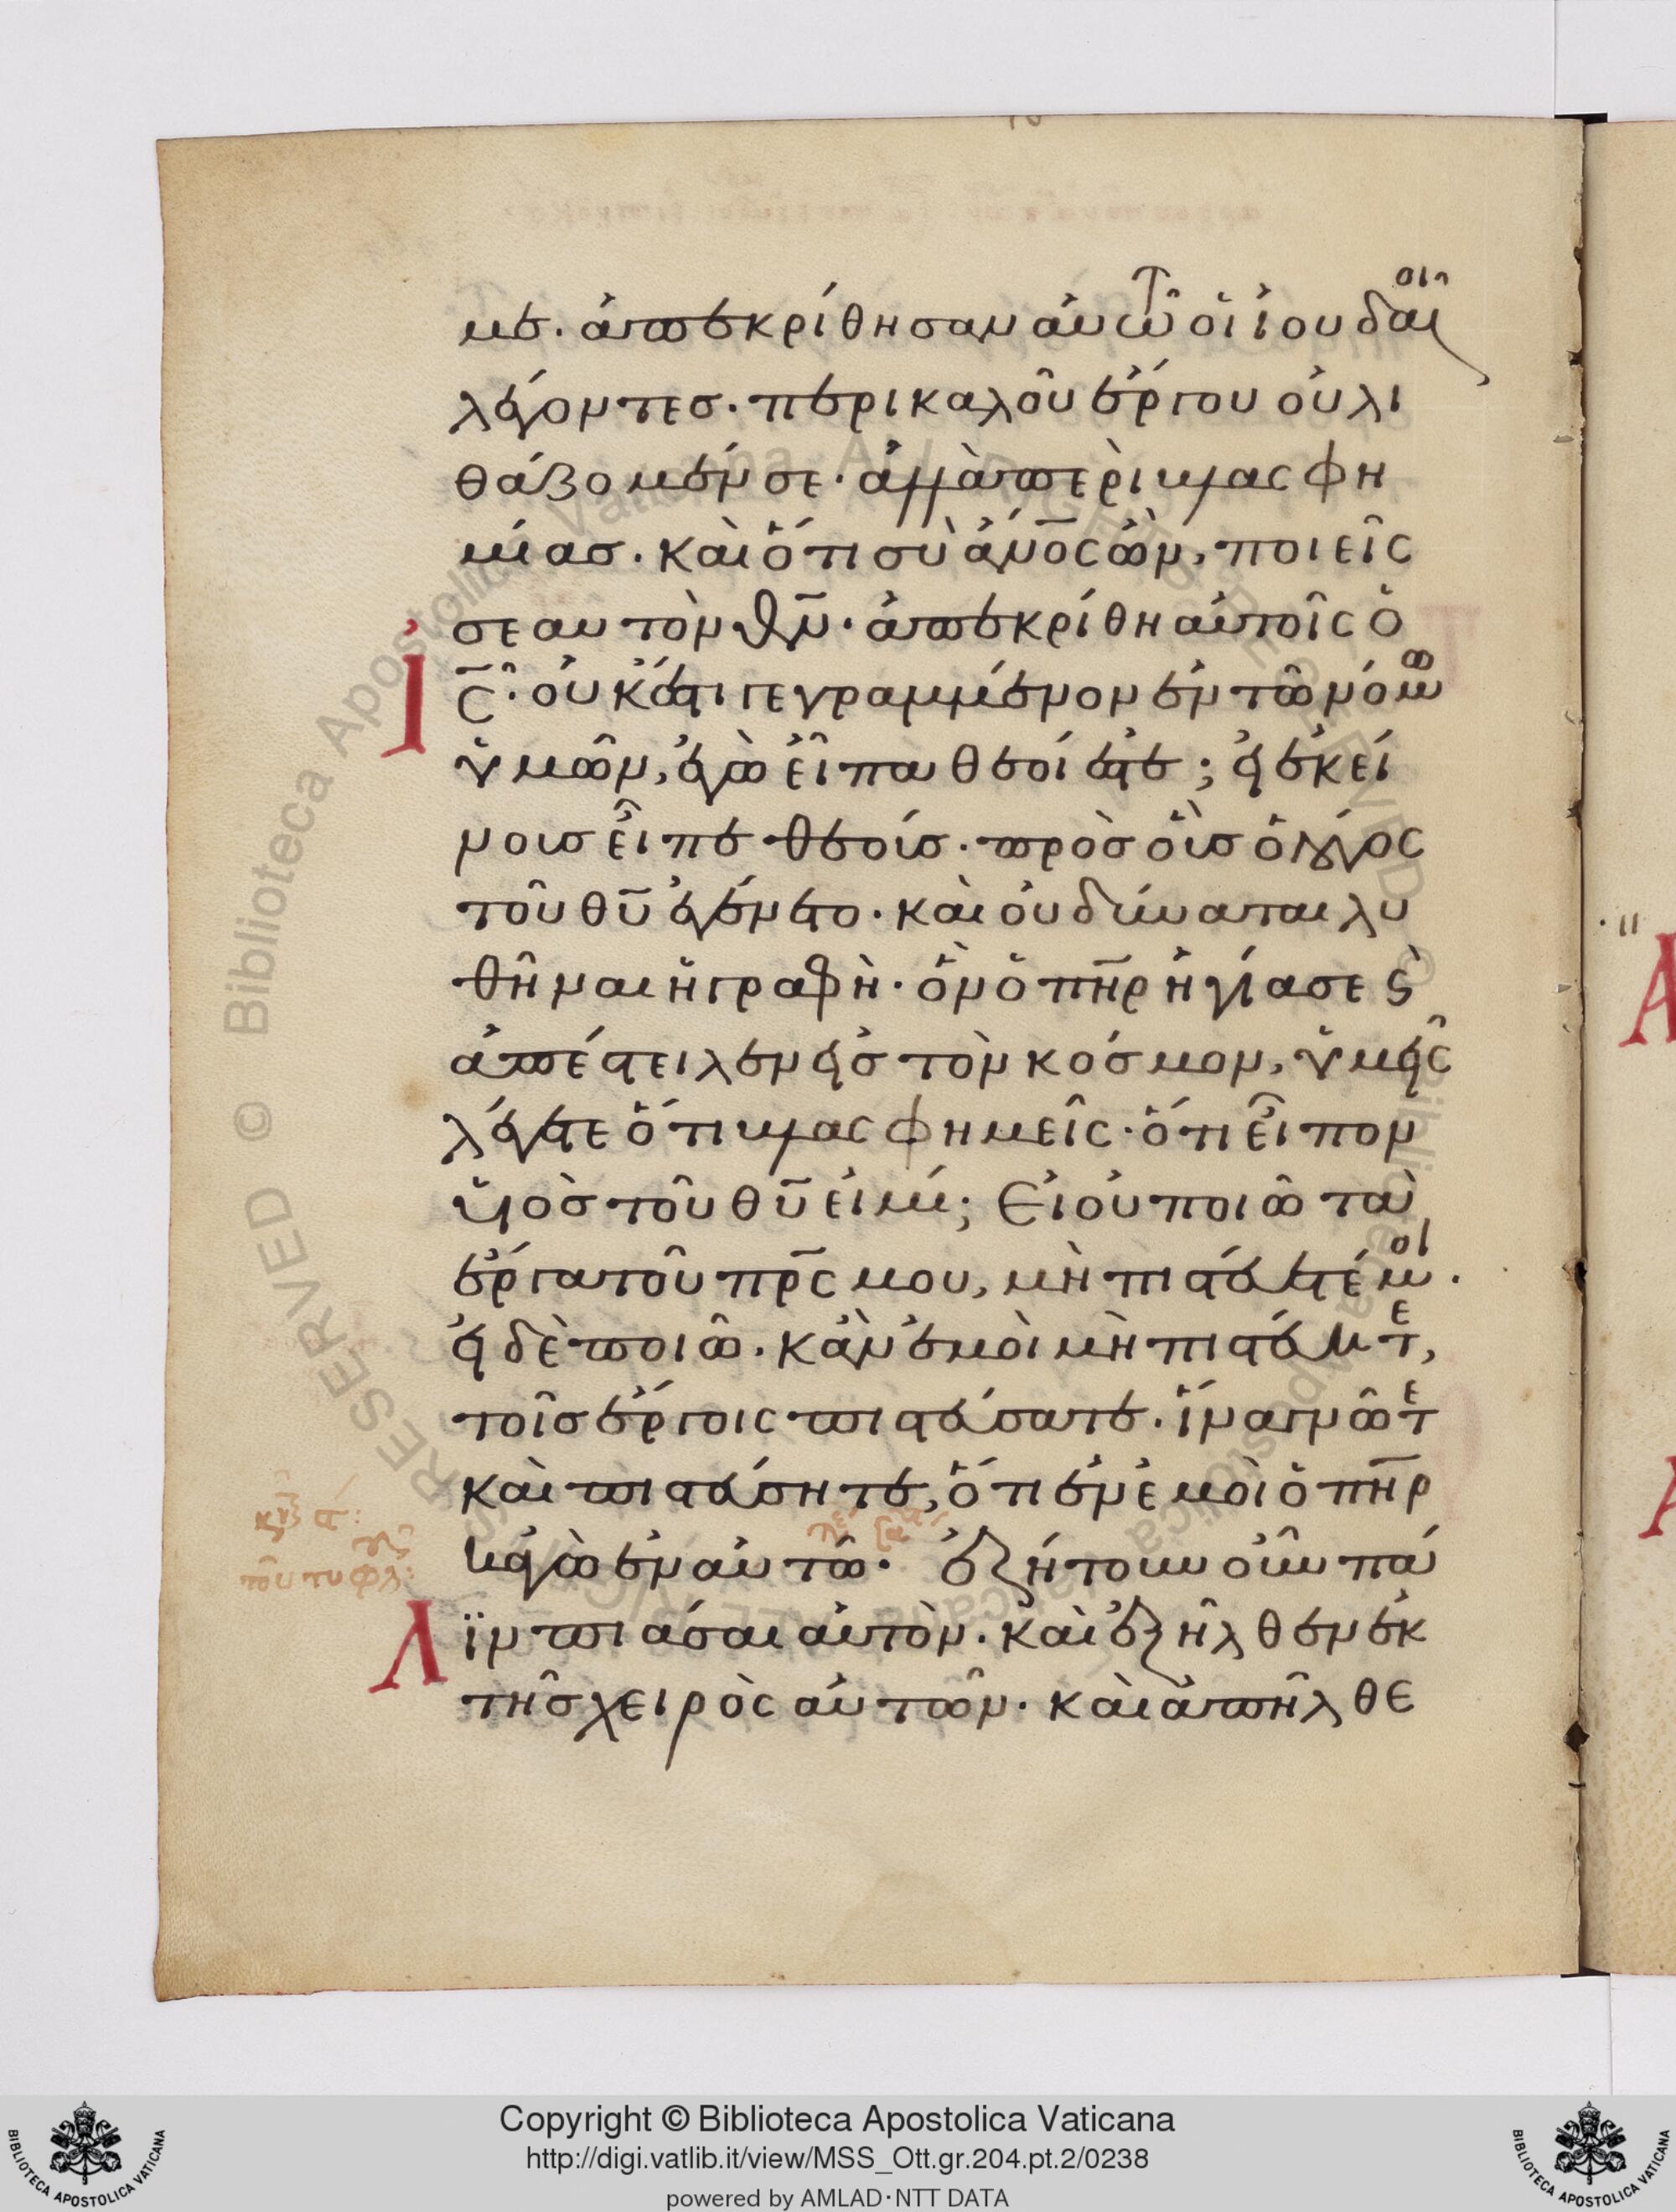 με. ἀπεκρίθησαν αὐτῶ οἱ ἰουδαῖοι
λέγοντεσ. περι καλοῦ ἔργου οὐ λι
θάζομέν σε. ἀλλὰ περὶ βλασφη
μίασ. καὶ ὅτι σὺ ἄν̅ο̅ς ὢν, ποιεῖς
σεαυτὸν θ̅ν̅. ἀπεκρίθη αὐτοῖς ὁ
Ἰ̅ς̅. οὐκ ἔστι γεγραμμένον ἐν τῶ νόμω
ὑμῶν, ἐγὼ εἶπα θεοί ἐστε; εἰ ἐκεί
νουσ εἶπε θεούσ. πρὸσ οὓσ ὁ λόγος
τοῦ θ̅υ̅ ἐγένετο. καὶ οὐ δύναται λυ
θῆναι ἡ γραφὴ. ὃν ὁ π̅η̅ρ̅ ἡγίασε ϗ
ἀπέστειλεν εἰσ τὸν κόσμον, ὑμεῖς
λέγετε ὅτι βλασφημεῖς. ὅτι εἶπον
υἱὸσ τοῦ θ̅υ̅ εἰμί; Εἰ οὐ ποιῶ τὰ
ἔργα τοῦ π̅ρ̅ς̅ μου, μὴ πιστεύετέ μοι.
εἰ δὲ ποιῶ. κἂν ἐμοὶ μὴ πιστεύητε,
τοῖσ ἔργοις πιστεύσατε. ἵνα γνῶτε
καὶ πιστεύσητε, ὅτι ἐν ἐμοὶ ὁ π̅η̅ρ̅
κἀγὼ ἐν αὐτῶ. ἐζήτουν οὖν πά
Λϊν πιάσαι αὐτὸν. καὶ ἐξῆλθεν ἐκ
τῆσ χειρὸς αὐτῶν. καὶ ἀπῆλθε
τοῦ τυφλ
Copyright © Biblioteca Apostolica Vaticana
http://digi.vatlib.it/view/MSS_Ott.gr.204.pt.2/0238
powered by AMLAD·NTT DATA
BIBLIOTECA APOSTOLICA VATICANA
BIBLIOTECA APOSTOLICA VATICANA